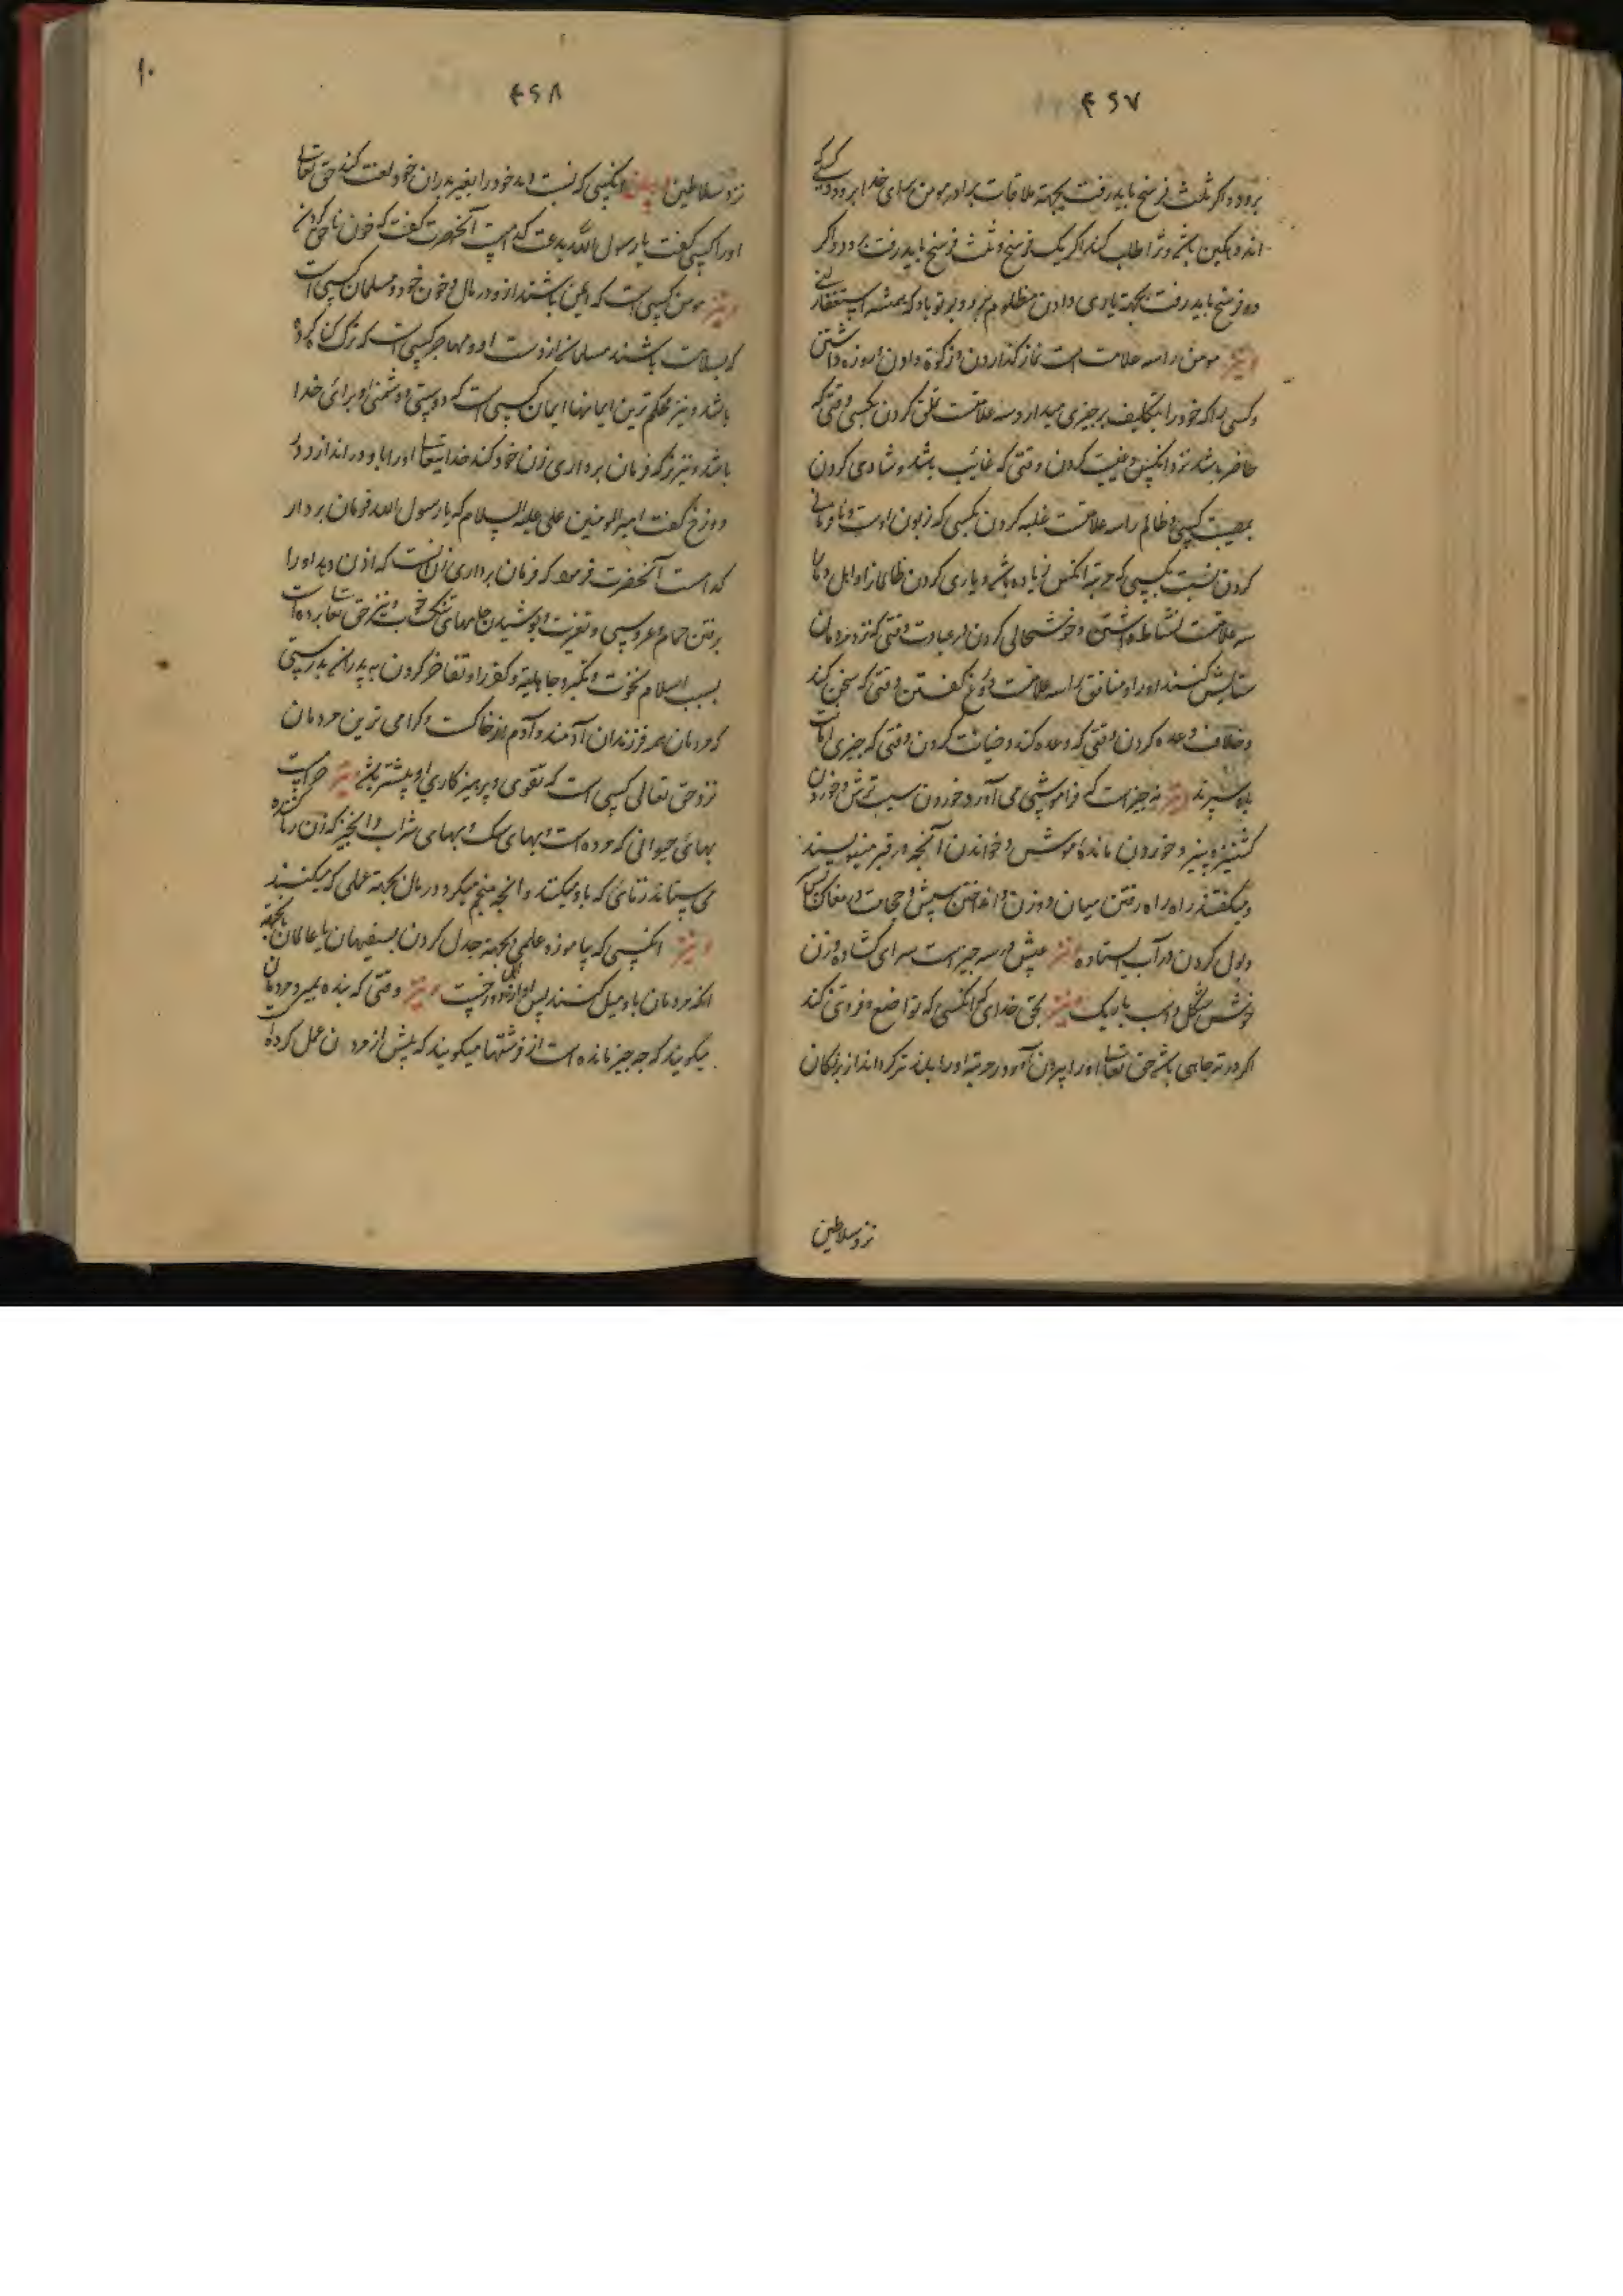 ۴۶۷
برود و اگر ثلث فرسخ باید رفت بجهة ملاقات برادر مومن برای خدا برود و
اندوهگین باشد و ترا طلب کند اگر یک فرسخ و ثلث فرسخ باید رفت برود و اگر
ده فرسخ باید رفت بجهة یاری دادن مظلوم برود و بر تو باد که همیشه استغفار کنی
و نیز مومن را سه علامت است نماز گذاردن و زکوة دادن و روزه داشتن
و کسی را که خود را بتکلیف بر چیزی میدارد سه علامتست تملق کردن بکسی وقتی که
حاضر باشد نزد انکس و غیبت کردن وقتی که غائب باشد و شادی کردن
بمصیبت کسی و ظالم را سه علامتست غلبه کردن بکسی که زبون اوست و نافرمانی
کردن نسبت بکسی که مرتبه انکس زیاده باشد و یاری کردن ظالمان و اهل ریا را
سه علامتست نشاط داشتن و خوشحالی کردن در عبادت وقتی که نزد مردمان
ستایش کنند او را و منافق را سه علامتست دروغ گفتن وقتی که سخن کند
و خلاف وعده کردن وقتی که وعده کند و خیانت کردن وقتی که چیزی امانت
باو سپرند و نیز نه چیز است که فراموشی می آورد خوردن سیب ترش و خوردن
کشنیز و پنیر و خوردن مانده موش و خواندن آنچه در قبر مینویسند
و راه رفتن میان دو زن و انداختن سپش و حجامت در مغاک
و بول کردن در آب ایستاده و نیز عیش در سه چیز است سرای گشاده و زن
خوش شکل و اسب باریک و نیز بحق خدای که انکسی که تواضع و فروتنی کند
اگر در ته چاهی باشد حق تعالی او را بیرون آورد و مرتبه او را بلند تر گرداند از بزرگان
نزد سلاطین
۱۰
۴۶۸
نزد سلاطین و نیز انکسی که نسبت دهد خود را بغیر پدران خود لعنت کند حق تعالی
او را کسی گفت یا رسول الله بدعت کدام است آنحضرت گفت که خون ناحق کردن
و نیز مومن کسی است که ایمن باشند ازو در مال و خون خود و مسلمان کسی است
که بسلامت باشند مسلمانان از دست او و مهاجر کسی است که ترک گناه کرده
باشد و نیز محکم ترین ایمانها ایمان کسی است که دوستی و دشمنی او برای خدا
باشد و نیز هر که فرمان برداری زن خود کند خدایتعالی او را باو در اندازد در
دوزخ گفت امیر المومنین علی علیه السلام که یا رسول الله فرمان بردار
کدامست آنحضرت فرمود که فرمان برداری زن آنست که اذن دهد او را
برفتن حمام و عروسی و تعزیت و پوشیدن جامهای تنک و نیز حق تعالی برده است
بسبب اسلام نخوت و تکبر جاهلیة و کفر را و تفاخر کردن به پدران بدرستی
که مردمان همه فرزندان آدمند و آدم از خاکست و گرامی ترین مردمان
نزد حق تعالی کسی است که تقوی و پرهیزکاری او بیشتر باشد و نیز حرام است
بهای حیوانی که مرده است و بهای سگ و بهای شراب و انچیز که زن زناکننده
می ستاند زنائی که باو میکنند و انچه منجم میگیرد و مال بجهة عملی که میکنند
و نیز انکسی که بیاموزد علمی بجهة جدل کردن بسفیهان یا عالمان یا بجهة
انکه مردمان باو میل کنند پس او از اهل دوزخست و نیز وقتی که بنده بمیرد مردمان
میگویند که چه چیز مانده است ازو فرشتها میگویند که پیش از مردن عمل کرده